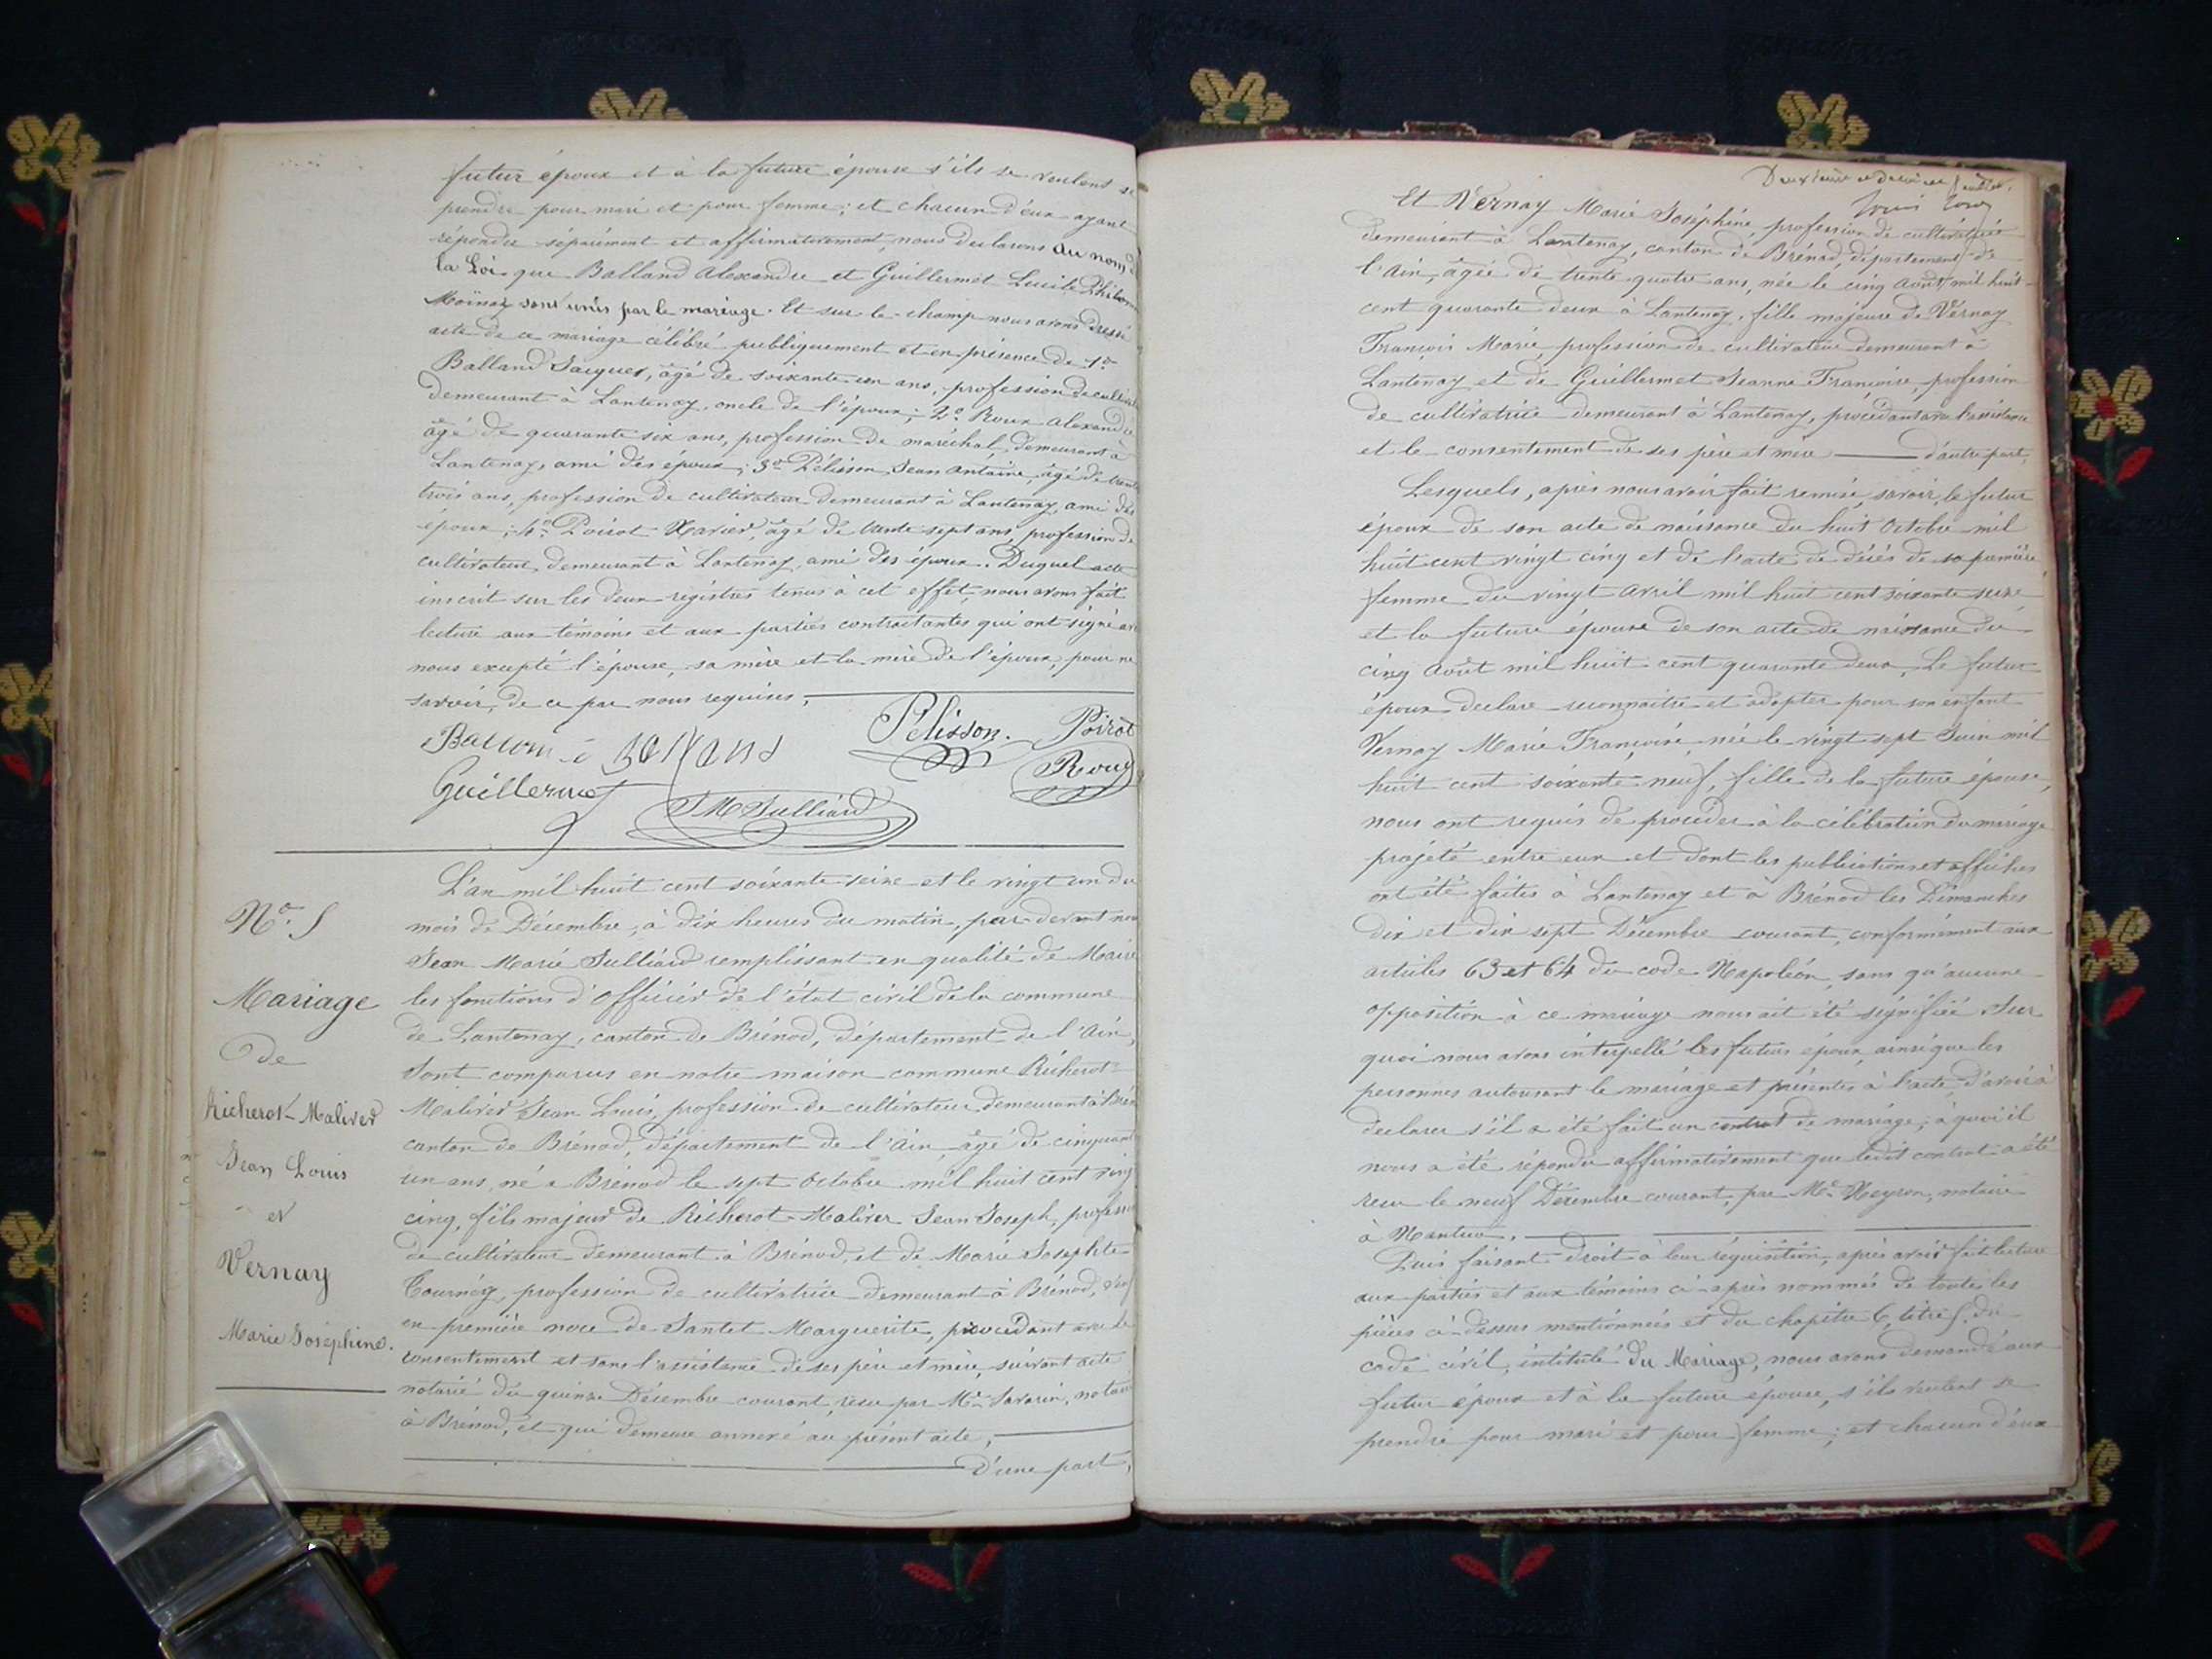 futur époux et à la future épouse s'ils se veulent se
prendre pour mari et pour femme ; et chacun d'eux ayant
répondu séparément et affirmativement, nous déclarons au nom de
la Loi que Balland Alexandre et Guillermet Lucile
sont unis par le mariage. Et sur le champ nous avons dressé
acte de ce mariage célébré publiquement et en présence de 1º
Balland Jacques, âgé de soixante un ans, profession de
demeurant à Lantenay, oncle de l'époux ; 2º Roux Alexandre
âgé de quarante six ans, profession de maréchal, demeurant à
Lantenay, ami des époux ; 3º Pélisson Jean Antoine, âgé de
trois ans, profession de cultivateur demeurant à Lantenay, ami des
époux ; 4º Poirot Xavier, âgé de trente sept ans, profession de
cultivateur, demeurant à Lantenay, ami des époux. Duquel acte
inscrit sur les deux régistres tenus à cet effet, nous avons fait
lecture aux témoins et aux parties contractantes qui ont signé
nous excepté l'épouse, sa mère et la mère de l'époux, pour ne
savoir, de ce par nous requises.
Pelisson. Poirot
Roux
Guillermet
JM Julliard
Nº. 5
Mariage
de
Richerot-Maliver
Jean Louis
et
Vernay
Marie Joséphine.
L'an mil huit cent soixante seize et le vingt un du
mois de Décembre, à dix heures du matin, par devant nous
Jean Marie Julliard remplissant en qualité de Maire
les fonctions d'officier de l'état civil de la commune
de Lantenay, canton de Brénod, département de l'Ain,
Sont comparus en notre maison commune Richerot-
Maliver Jean Louis, profession de cultivateur demeurant à
canton de Brénod, département de l'Ain, âgé de cinquante
un ans, né à Brénod le sept octobre mil huit cent vingt
cinq, fils majeur de Richerot-Maliver Jean Joseph, profession
de cultivateur demeurant à Brénod, et de Marie Josephte
profession de cultivatrice demeurant à Brénod, veuf
en première noce de Santet Marguerite, procédant avec le
consentement et sans l'assistance de ses père et mère, suivant acte
notarié du quinze Décembre courant, reçu par Me Savarin, notaire
à Brénod, et qui demeure annexé au présent acte,
d'une part,
Deuxième et dernier feuillet.
Et Vernay Marie Joséphine, profession de cultivatrice
demeurant à Lantenay, canton de Brénod, département de
l'Ain, âgée de trente quatre ans, née le cinq Août mil huit
cent quarante deux à Lantenay, fille majeure de Vernay
François Marie, profession de cultivateur demeurant à
Lantenay et de Guillermet Jeanne Françoise, profession
de cultivatrice demeurant à Lantenay, procédant avec l'assistance
et le consentement de ses père et mère d'autre part,
Lesquels, après nous avoir fait remise, savoir, le futur
époux de son acte de naissance du huit octobre mil
huit cent vingt cinq et de l'acte de décès de sa première
femme du vingt Avril mil huit cent soixante seize,
et la future épouse de son acte de naissance du
cinq Août mil huit cent quarante deux, Le futur
époux declare reconnaitre et adopter pour son enfant
Vernay Marie Françoise née le vingt sept Juin mil
huit cent soixante neuf, fille de la future épouse,
nous ont requis de procéder à la célébration du mariage
projeté entre eux et dont les publications et affiches
ont été faites à Lantenay et à Brénod les Dimanches
dix et dix sept Décembre courant, conformément aux
articles 63 et 64 du code Napoléon, sans qu'aucune
opposition à ce mariage nous ait été signifiée. Sur
quoi nous avons interpellé les futurs époux, ainsi que les
personnes autorisant le mariage et présentes à l'acte, d'avoir à
declarer s'il a été fait un contrat de mariage ; à quoi il
nous a été répondu affirmativement que ledit contrat a été
reçu le neuf Décembre courant, par Me Neyron, notaire
à Nantua.
Puis faisant droit à leur réquisition, après avoir fait lecture
aux parties et aux témoins ci-après nommés de toutes les
pièces ci-dessus mentionnées et du chapitre 6, titre 5, du
code civil, intitulé du Mariage, nous avons demandé aux
futur époux et à la future épouse, s'ils veulent se
prendre pour mari et pour femme ; et chacun d'eux